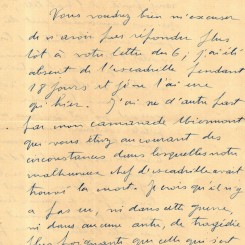 Vous voudrez bien m'excuser
de n'avoir pas répondu plus
tôt à votre lettre du 6, j'ai été
absent de l'escadrille pendant
18 jours et je ne l'ai eue
qu'hier. J'ai su d'autre part
par mon camarade
que vous étiez au courant des
circonstances dans lesquelles notre
malheureux chef d'escadrille avait
trouvé la mort. Je crois qu'il n'y
a pas eu, ni dans cette guerre,
ni dans aucune autre, de tragédie
plus poignante que celle qui s'est